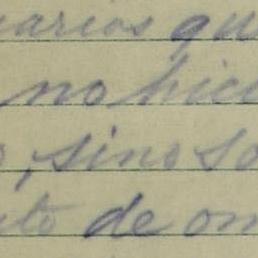 uarios qu
no hici
o, sino so
to de om